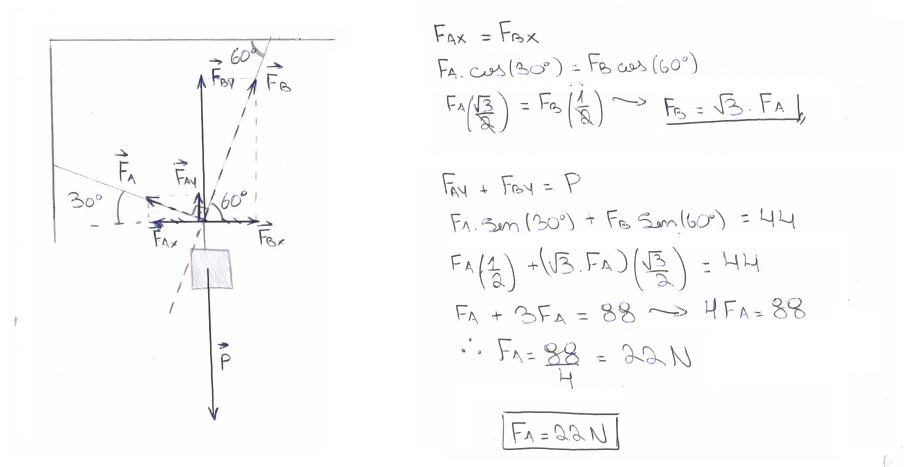 60°
F⃗BY
F⃗B
F⃗A
F⃗AY
30°
60°
F⃗AX
F⃗BX
P⃗
FAX = FBX
FA. cos(30°) = FB cos(60°)
FA(√3/2) = FB(1/2) → FB = √3. FA
FAY + FBY = P
FA. Sen(30°) + FB Sen(60°) = 44
FA(1/2) + (√3. FA)(√3/2) = 44
FA + 3FA = 88 → 4FA = 88
∴ FA = 88/4 = 22N
FA = 22N